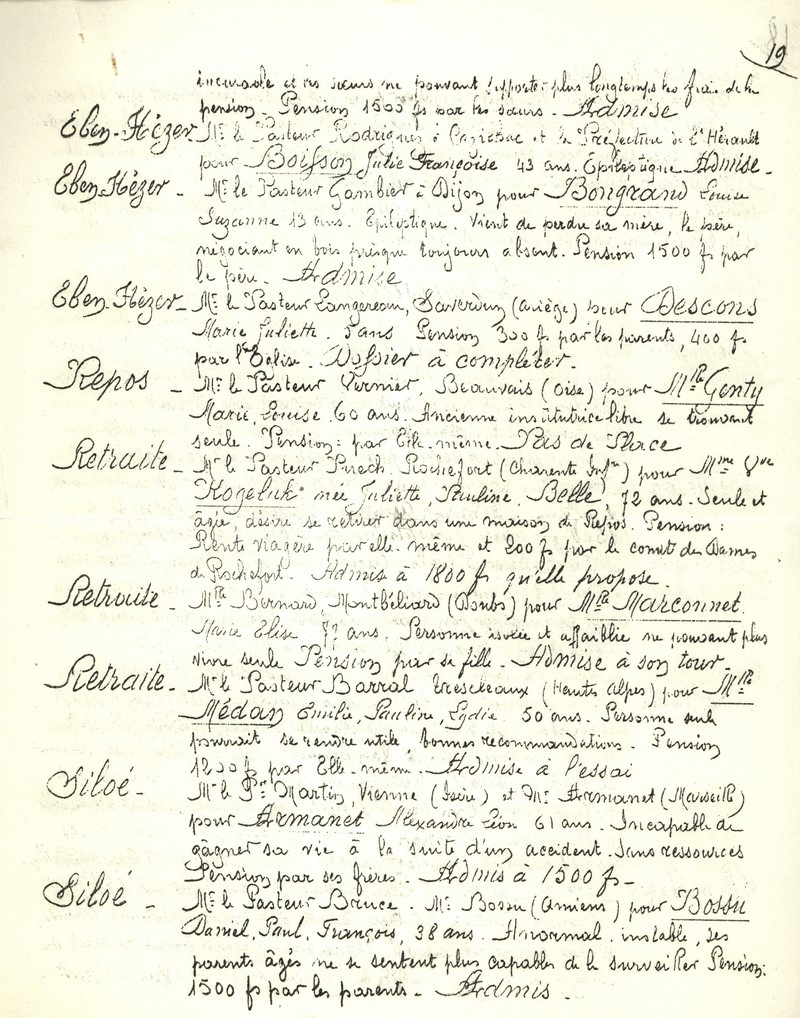 19
incurable et ses sœurs ne pouvant supporter plus longtemps les frais de la
pension. Pension 1500 fs par les sœurs. Admise
Eben-Hézer - Mr le Pasteur Rodrigues à et la Préfecture de l'Hérault
pour Boisson Julie Françoise 43 ans. Epileptique Admise.
Eben-Hézer - Mr le Pasteur Gambier à Dijon pour Bongrand Louise
Suzanne 13 ans. Epileptique. Vient de perdre sa mère, le père,
négociant en bois presque toujours absent. Pension 1500 fs par
le père. Admise
Eben-Hézer - Mr le Pasteur Langereau, Saverdun (Ariège) pour Descons
Marie Juliette. 5 ans Pension 300 fs par les parents, 400 fs
par l'Eglise. Dossier à compléter.
Repos - Mr le Pasteur Vernier, Beauvais (Oise) pour Mlle Genty
Marie, Louise. 60 ans. Ancienne institutrice libre se trouvant
seule. Pension: par Elle-même. Pas de Place
Retraite - Mr le Pasteur Puech. Rochefort (Charente Infre) pour Mme Vve
Kogeluk née Juliette, Pauline, Belle, 72 ans. Seule et
âgée, désire se retirer dans une maison de Repos. Pension:
Rente viagère par elle-même et 200 fs par le comité des Dames
de Rochefort. Admise à 1800 fs qu'elle propose.
Retraite - Mlle Bernard, Montbéliard (Doubs) pour Marconnet
Marie Elise 77 ans. Personne isolée et affaiblie ne pouvant plus
vivre seule Pension par sa fille. Admise à son tour.
Retraite - Mr le Pasteur Barral Trescléaux (Hautes Alpes) pour Mlle
Médan Emilie, Pauline, Lydie 50 ans. Personne seule
pouvait se rendre utile, bonnes recommandations. Pension
1200 fs par Elle-même. Admise à l'essai
Siloé - Mr le Pr Martin, Vienne (Isère) et Mr Armanet (Marseille)
pour Armanet Alexandre Léon 61 ans. Incapable de
gâgner sa vie à la suite d'un accident. Sans ressources
Pension par ses frères. Admis à 1500 fs -
Siloé - Mr le Pasteur Bruce. Mr Bossu (Amiens) pour Bossu
Daniel, Paul, François, 38 ans. Anormal, instable, ses
parents âgés ne se sentent plus capables de le surveiller Pension:
1500 fs par les parents - Admis.